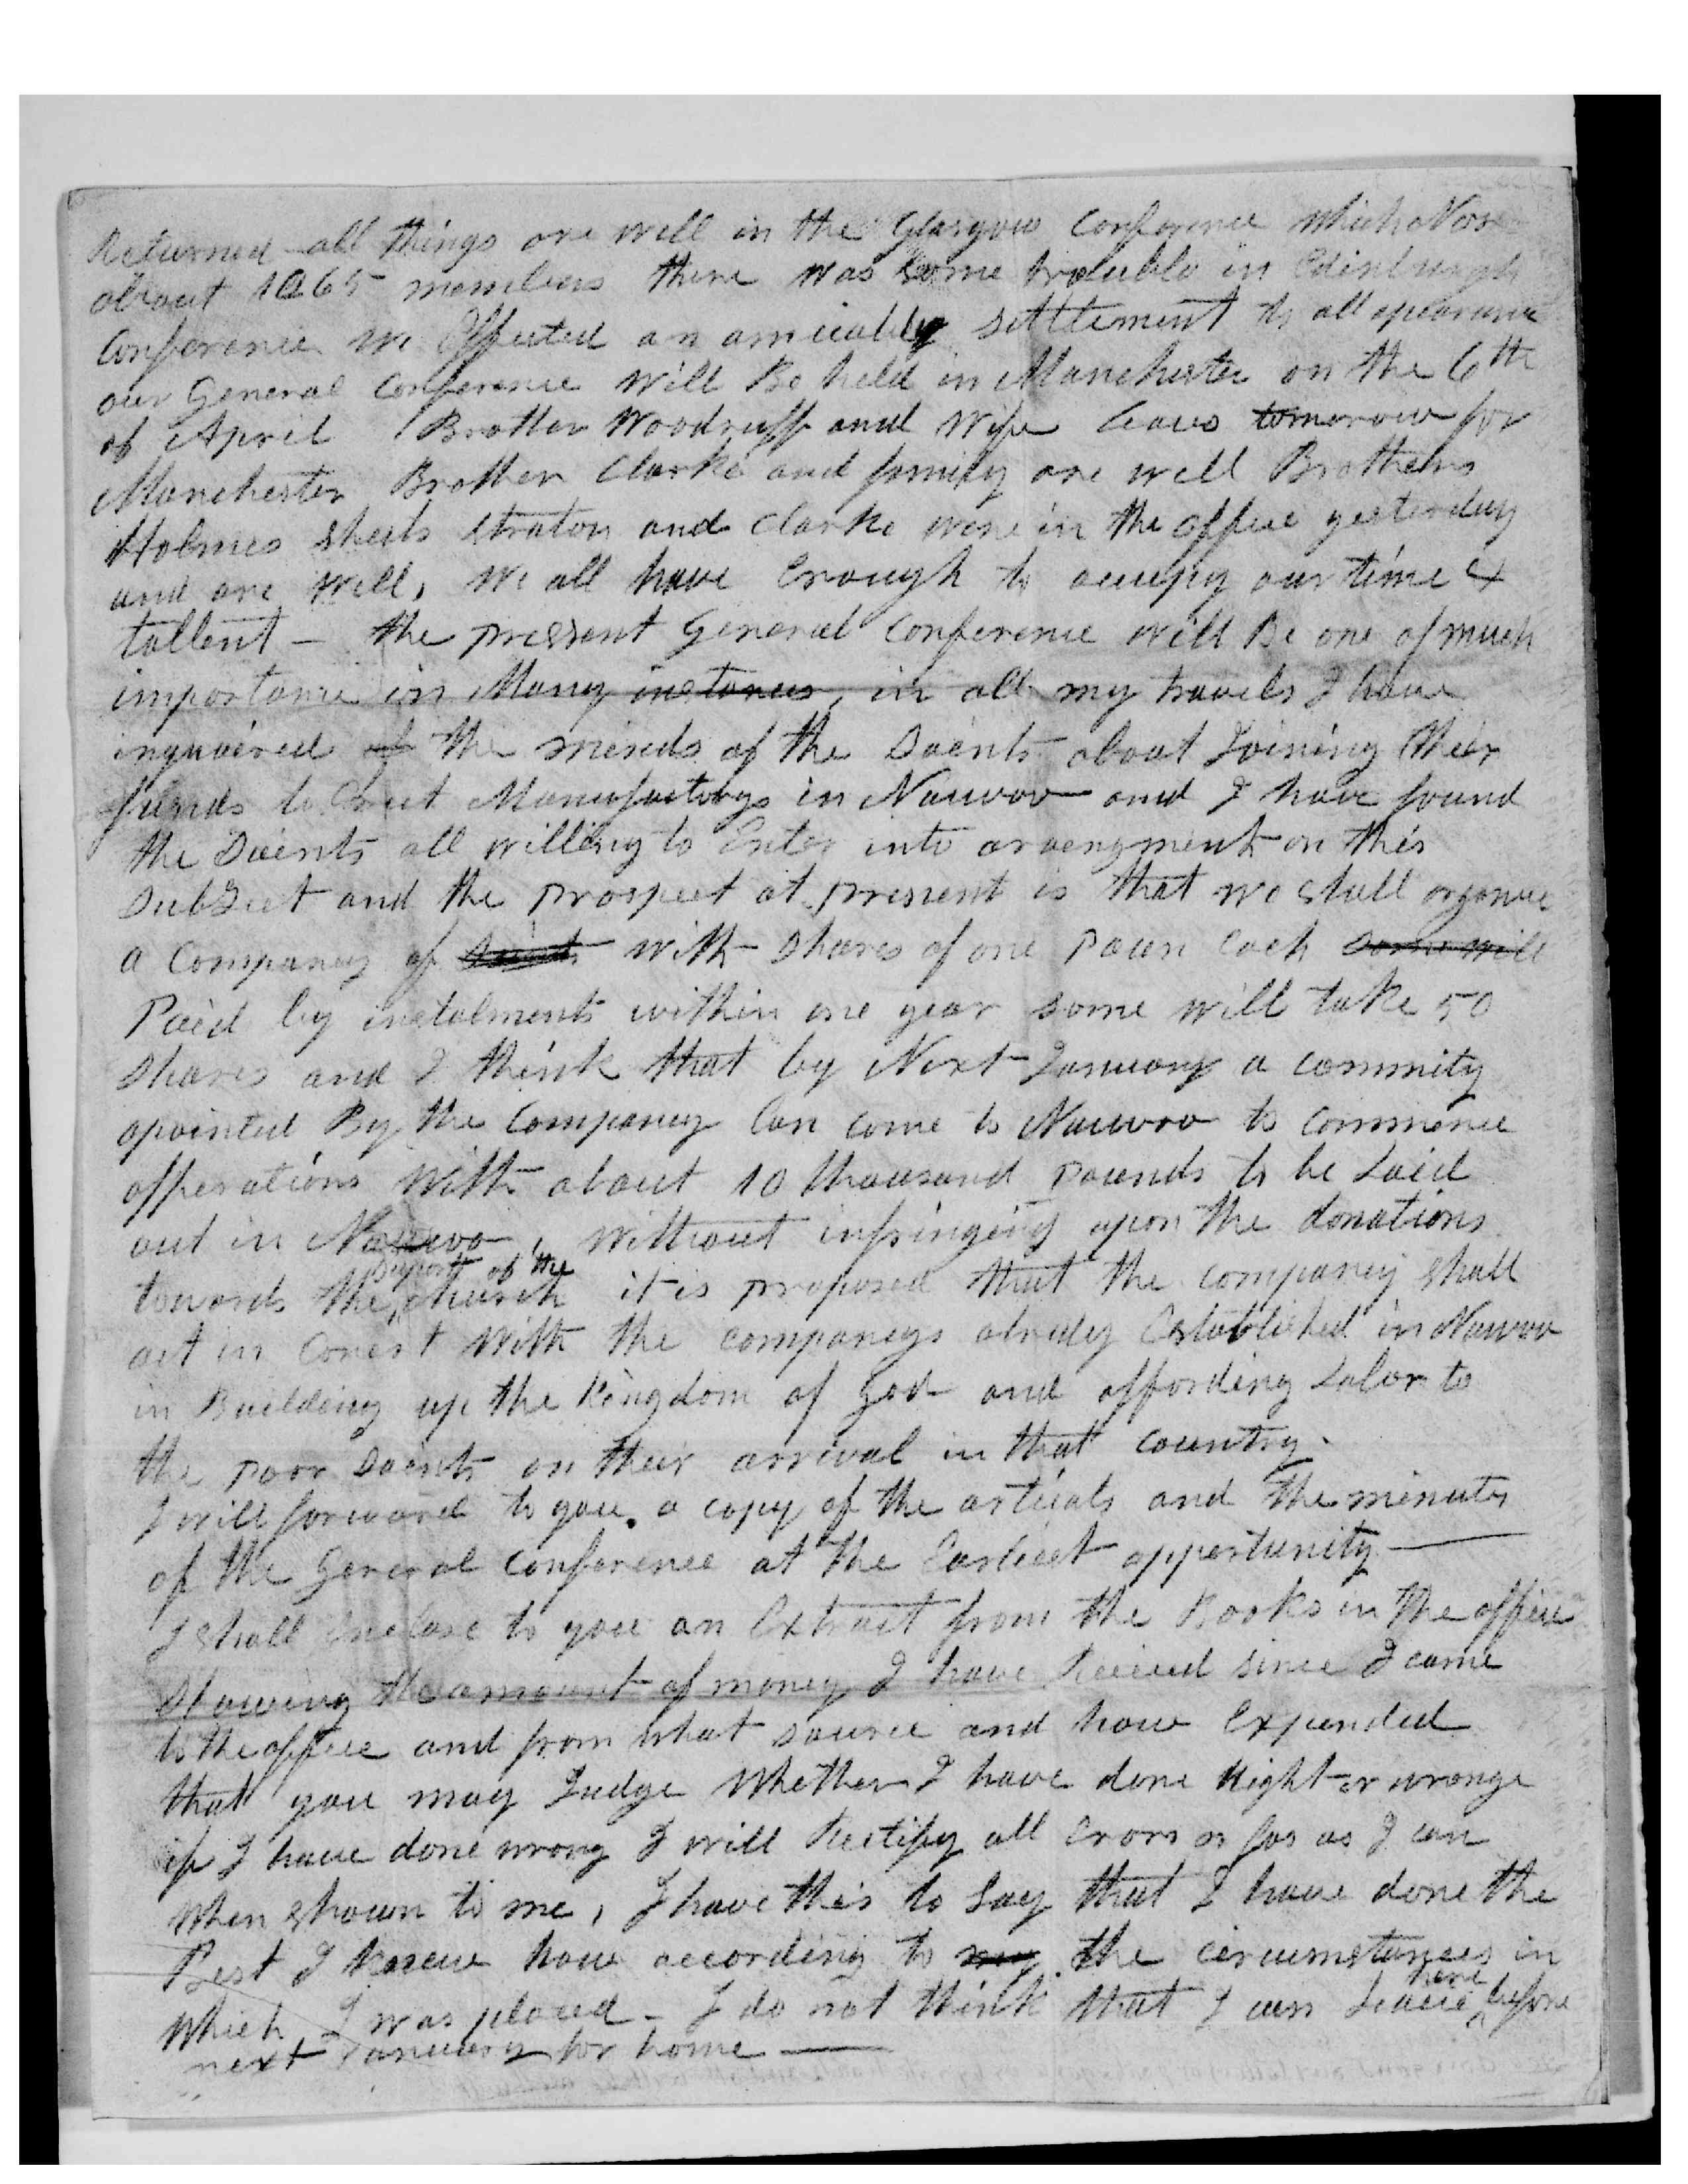 Returned all things are well in the Glasgow Conference which Now
about 1065 members there was some trouble in Edinburgh
Conference we Effected an amicably settlement to all apearance
our General Conference will Be held in Manchester on the 6th
of April Brother Woodruff and wife leaves tomorow for
Manchester Brother Clarke and family are well Brothers
Holmes Sheets Straton and Clarke were in the office yesterday
and are well, we all have Enough to occupy our time &
tallent - the pressent General Conference will Be one of much
importance in Many instances, in all my travels I have
inquoired of the minds of the Saints about Joining their
funds to Erect Manufactorys in Nauvoo and I have found
the Saints all willing to Enter into arrangment on this
SubJect and the prospect at pressent is that we shall organise
a Company of Saints with shares of one Poun Each some will
Paid by instalments within one year some will take 50
shares and I think that by Next January a commity
apointed By the Company Can come to Nauvoo to commence
opperations with about 10 thousand Pounds to be Laid
out in Nauvoo, without infringeing upon the donations
towards the support of the church it is proposed that the company shall
act in Consert with the companeys alredy Established in Nauvoo
in Buelding up the kingdom of God and affording Labor to
the Poor Saints on their arrival in that country.
I will forward to you a copy of the articals and the minutes
of the General Conference at the Earliest oppertunity —
I shall Enclose to you an Extract from the Books in the office
showing the amount of money I have Recieved since I came
to the office and from what source and how Expended
that you may Judge whether I have done Right or wronge
if I have done wrong I will Rectify all Erors as far as I can
when shown to me, I have this to say that I have done the
Best I knew how according to my the circumstances in
which I was placed - I do not think that I can Leave here before
next January for home —